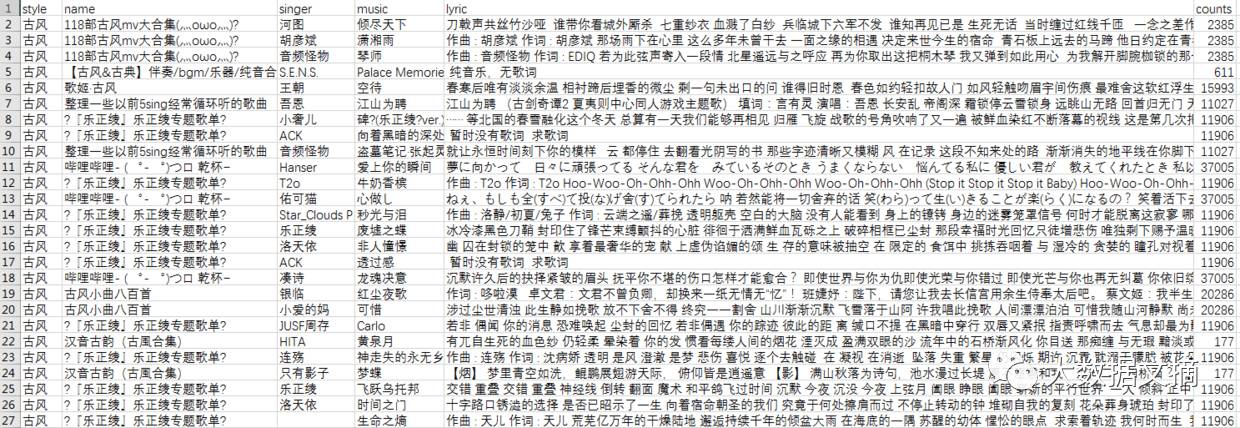 1 style name singer music lyric counts
2 古风 118部古风mv大合集(,,,oωo,,,)? 河图 倾尽天下 刀戟声共丝竹沙哑 谁带你看城外厮杀 七重纱衣 血溅了白纱 兵临城下六军不发 谁知再见已是 生死无话 当时缠过红线千匝 一念之差 2385
3 古风 118部古风mv大合集(,,,oωo,,,)? 胡彦斌 潇湘雨 作曲 : 胡彦斌 作词 : 胡彦斌 那场雨下在心里 这么多年未曾干去 一面之缘的相遇 决定来世今生的宿命 青石板上远去的马蹄 他日约定在青 2385
4 古风 118部古风mv大合集(,,,oωo,,,)? 音频怪物 琴师 作曲 : 音频怪物 作词 : EDIQ 若为此弦声寄入一段情 北星遥远与之呼应 再为你取出这把桐木琴 我又弹到如此用心 为我解开脚腕枷锁的 2385
5 古风 【古风&古典】伴奏/bgm/乐器/纯音合 S.E.N.S. Palace Memorie 纯音乐，无歌词 611
6 古风 歌姬.古风 王朝 空待 春寒后唯有淡淡余温 相衬蹄后埋香的微尘 剩一句未出口的问 谁得旧时恩 春色如约轻扣故人门 如风轻触吻眉宇间伤痕 最难舍这软红浮生 15993
7 古风 整理一些以前5sing经常循环听的歌曲 吾恩 江山为聘 （古剑奇谭2 夏夷则中心同人游戏主题歌） 填词：言有灵 演唱：吾恩 长安乱 帝阁深 霜锁停云雪锁身 远眺山无路 回首归无门 11027
8 古风 ?『乐正绫』乐正绫专题歌单? 小奢儿 碑?(乐正绫?ver.) …… 等北国的春雪融化这个冬天 总算有一天我们能够再相见 归雁 飞旋 战歌的号角吹响了又一遍 被鲜血染红不断落幕的视线 这是第几次 11906
9 古风 ?『乐正绫』乐正绫专题歌单? ACK 向着黑暗的深处 暂时没有歌词 求歌词 11906
10 古风 整理一些以前5sing经常循环听的歌曲 音频怪物 盗墓笔记·张起灵 就让永恒时间刻下你的模样 云 都停住 去翻看光阴写的书 那些字迹清晰又模糊 风 在记录 这段不知来处的路 渐渐消失的地平线在你脚下 11027
11 古风 哔哩哔哩-（゜-゜)つロ 乾杯~ Hanser 爱上你的瞬间 夢に向かって 日々に頑張ってる そんな君を みているそのとき うまくならない 悩んでる私に 優しい君が 教えてくれたとき 私 37005
12 古风 ?『乐正绫』乐正绫专题歌单? T2o 牛奶香槟 作曲 : T2o 作词 : T2o Hoo-Woo-Oh-Ohh-Ohh Woo-Ohh-Ohh-Ohh-Ohh-Ohh-Ohh (Stop it Stop it Stop it Baby) Hoo-Woo-Oh- 11906
13 古风 ?『乐正绫』乐正绫专题歌单? 佑可猫 心做し ねぇ、もしも全(すべ)て投(な)げ舍(す)てられたら 呐 若然能将一切舍弃的话 笑(わら)って生(い)きることが楽(らく)になるの? 笑着活下去 11906
14 古风 ?『乐正绫』乐正绫专题歌单? Star_Clouds P 秒光与泪 作曲 : 洛静/初夏/兔子 作词 : 云端之遥/葬挽 透明躯壳 空白的大脑 没有人能看到 身上的镣铐 身边的迷雾笼罩信号 何时才能脱离这寂寥 11906
15 古风 ?『乐正绫』乐正绫专题歌单? 乐正绫 废墟之蝶 冰冷漆黑色刀鞘 封印住了锋芒束缚颤抖的心脏 徘徊于洒满鲜血瓦砾之上 破碎相框已尘封 那段幸福时光回忆只徒增悲伤 唯独剩下赐予温暖 11906
16 古风 ?『乐正绫』乐正绫专题歌单? 洛天依 非人憧憬 幽 囚在封锁的笼中 歆 享着最奢华的宠 献 上虚伪谄媚的颂 生 存的意味被抽空 在 限定的 食饵中 挑拣吞咽着 与 湿冷的 贪婪的 瞳孔对视着 11906
17 古风 ?『乐正绫』乐正绫专题歌单? ACK 透过感 暂时没有歌词 求歌词 11906
18 古风 哔哩哔哩-（゜-゜)つロ 乾杯~ 凑诗 龙魂决意 沉默许久后的抉择紧皱的眉头 抚平你不堪的伤口怎样才能愈合？ 即使世界与你为仇即使光荣与你错过 即使光芒与你也再无纠葛 你依旧 37005
19 古风 古风小曲八百首 银临 红尘夜歌 作词 : 哆啦漠 卓文君：文君不曾负卿，却换来一纸无情无"忆"！ 班婕妤：陛下，请您让我去长信宫用余生侍奉太后吧。 蔡文姬：我半生 20286
20 古风 古风小曲八百首 小爱的妈 可惜 涉过尘世清浊 此生静如挽歌 放不下舍不得 终究一一割舍 山川渐渐沉默 飞雪落于山阿 许我唱此挽歌 人间漂漂泊泊 可惜我随山河静默 20286
21 古风 ?『乐正绫』乐正绫专题歌单? JUSF周存 Carlo 若非 偶闻 你的消息 恐难唤起 尘封的回忆 若非偶遇 你的踪迹 彼此的距 离 缄口不提 在黑暗中穿行 双唇又紧抿 指责呼啸而去 气息却最为 11906
22 古风 汉音古韵（古風合集） HITA 黄泉月 有兀自生死的血色纱 仍轻柔 晕染着 你的发 惯看每缕人间的烟花 湮灭成 盈满双眼的沙 流年中的石桥渐风化 你目送 那痴缠 与无瑕 177
23 古风 ?『乐正绫』乐正绫专题歌单? 连殇 神走失的永无乡 作曲 : 连殇 作词 : 沈病娇 透明 是风 澄澈 是梦 悲伤 喜悦 逐个去触碰 在 凝视 在消逝 坠落 失重 11906
24 古风 汉音古韵（古風合集） 只有影子 梦蝶 【烟】 梦里青空如洗，鲲鹏展翅游天际， 俯仰皆是逍遥意 【影】 满山秋落为诗句， 池水漫过长堤 177
25 古风 ?『乐正绫』乐正绫专题歌单? 乐正绫 飞跃乌托邦 交错 重叠 交错 重叠 神经线 倒转 翻面 魔术 和平鸽飞过时间 沉默 今夜 沉没 今夜 上弦月 阖眼 睁眼 阖眼 11906
26 古风 ?『乐正绫』乐正绫专题歌单? 洛天依 时间之门 十字路口锈迹的选择 是否已昭示了一生 向着宿命朝圣的我们 究竟于何处擦肩而过 不停止转动的钟 堆砌自我的复刻 花朵葬身琥珀 封印了 11906
27 古风 ?『乐正绫』乐正绫专题歌单? 生命之熵 作曲 : 天儿 作词 : 天儿 荒芜亿万年的干燥陆地 邂逅持续千年的倾盆大雨 在海底的一隅 苏醒的幼体 憧憬的眼点 求索着轨迹 我何时而生 11906